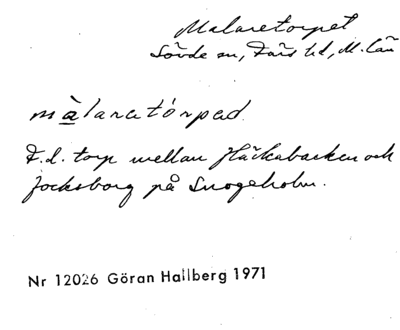 Malaretorpet
Sövde sn, Färs hd, M. län
màlaratórpad
F.d. torp mellan Häckabacken och
Jocksborg på Snogeholm.
Nr 12026 Göran Hallberg 1971